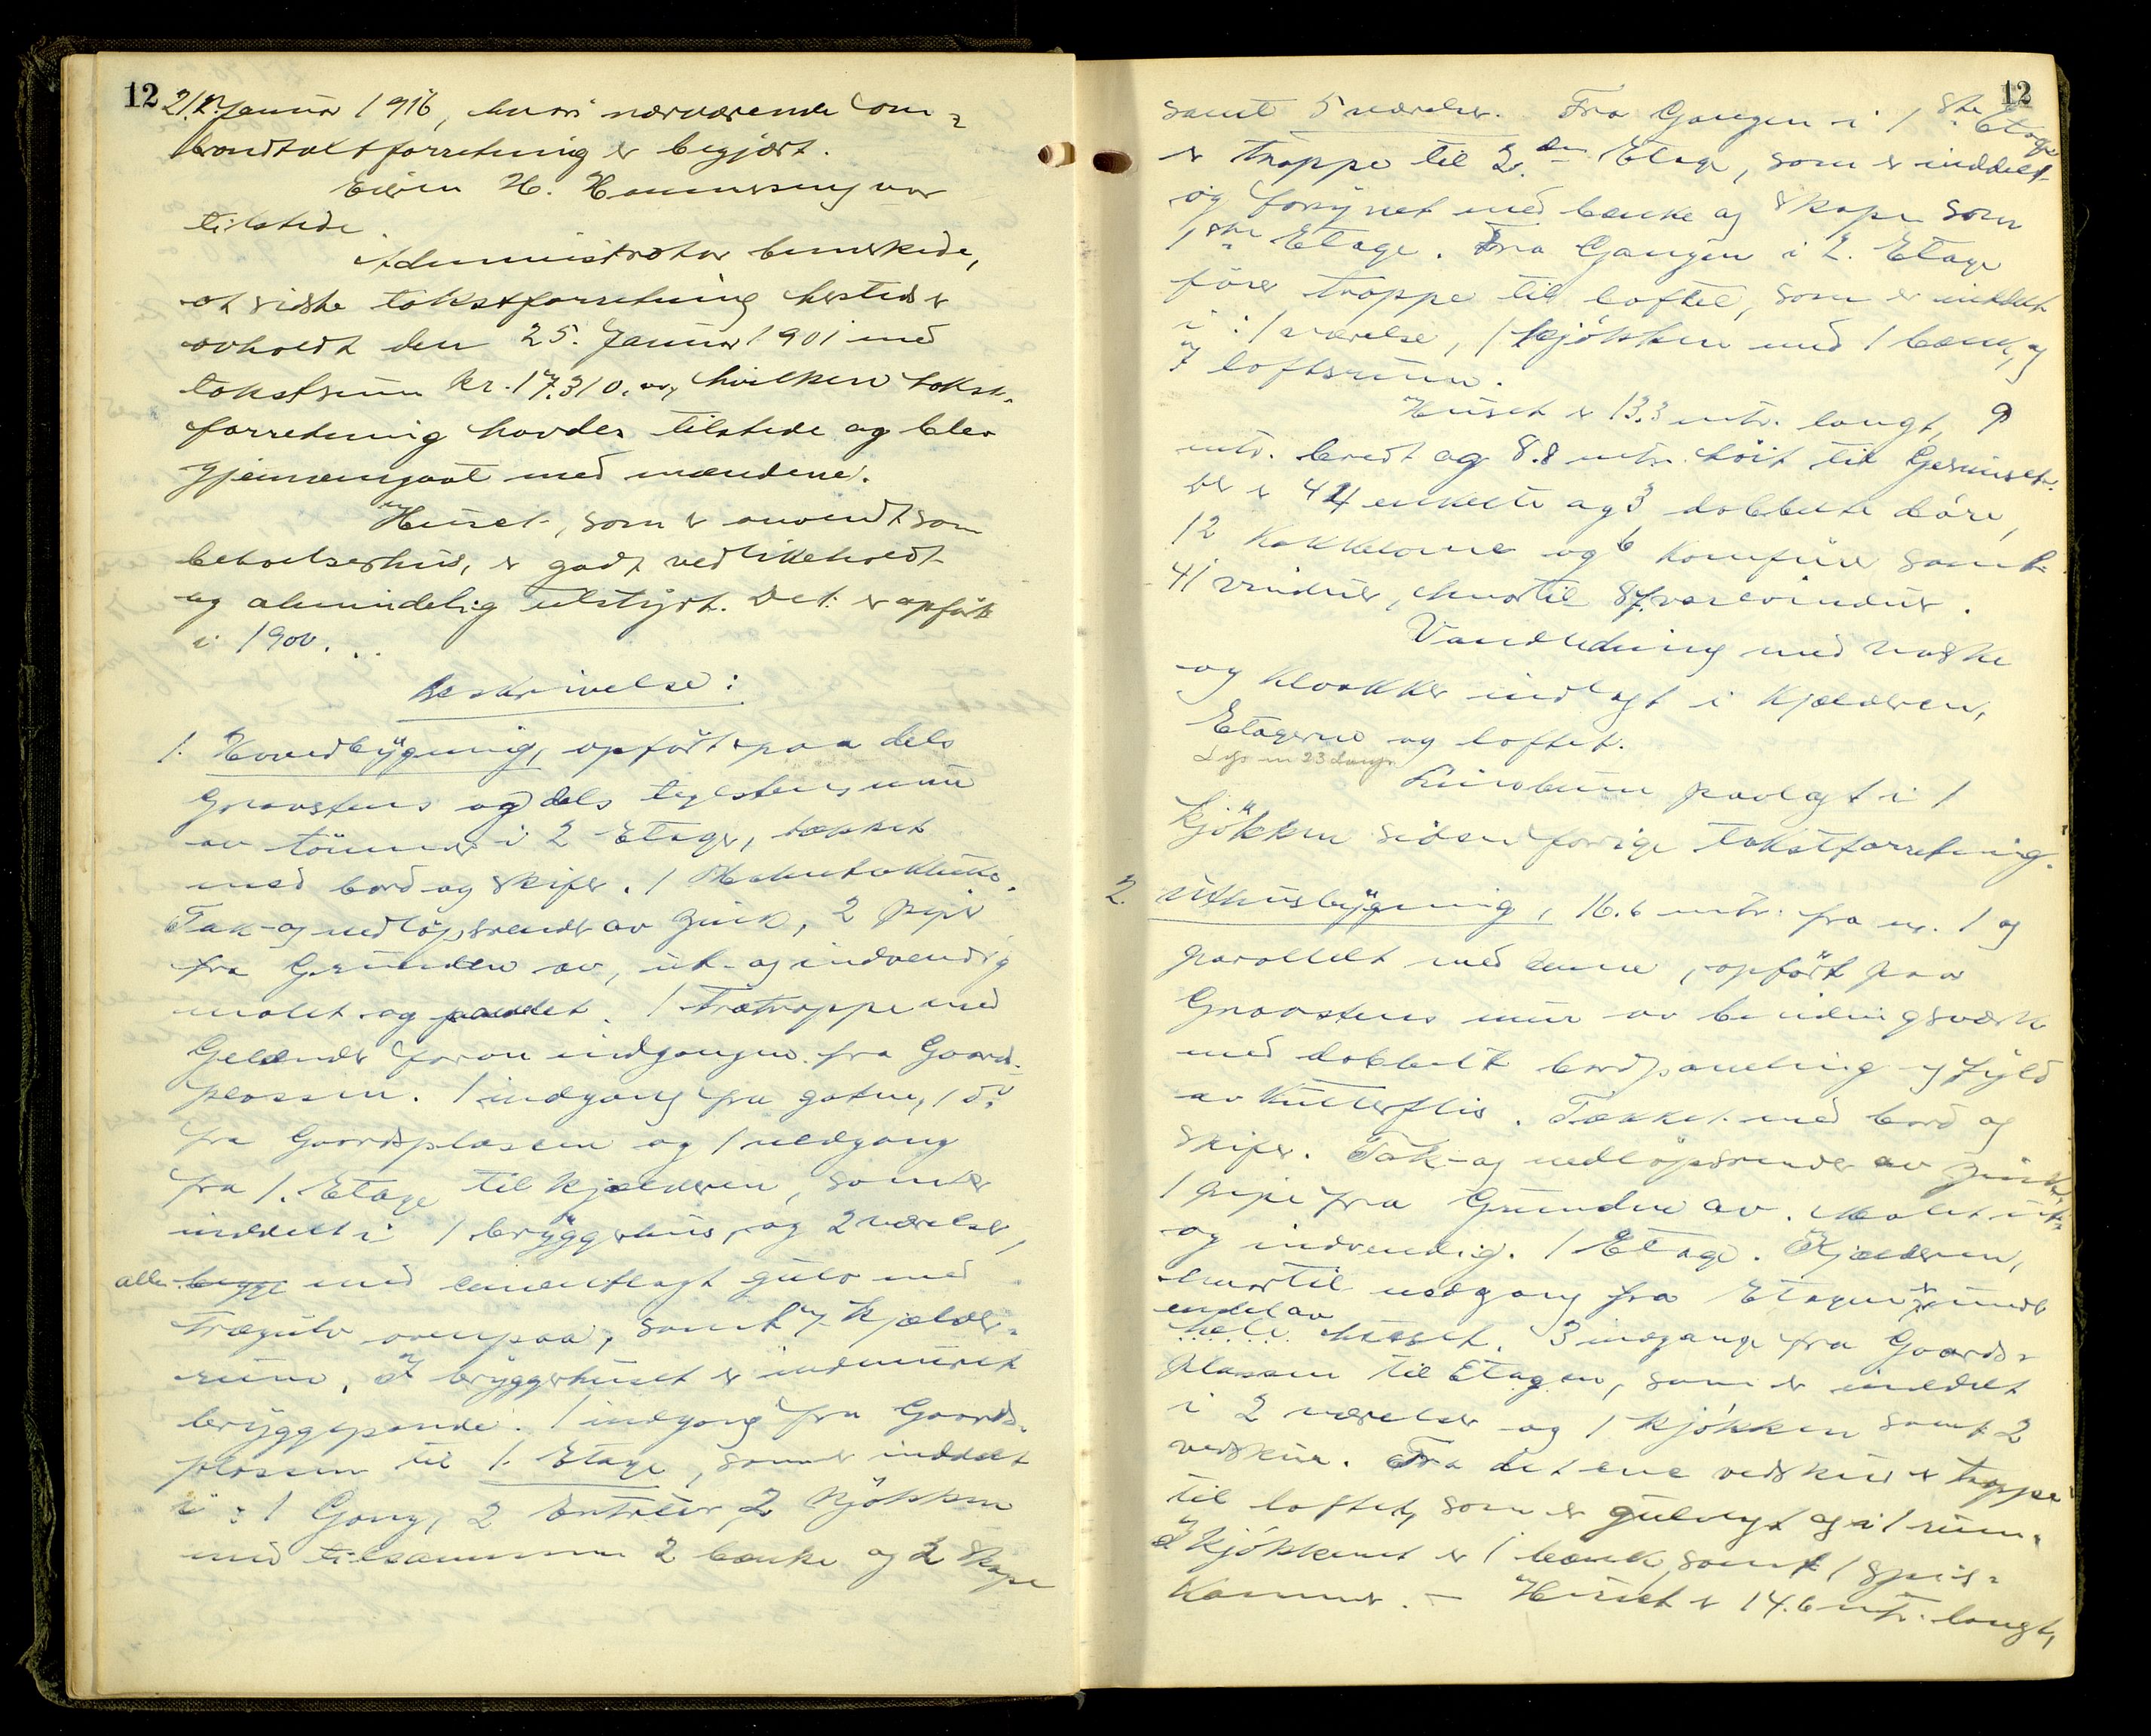 12
21. Januar 1916, hvori nærværende om-
brandtakstforretning er begjært.
Eieren H. Hammersmg var
tilstede.
Administrator bemerkede,
at sidste takstforretning hersteds er
avholdt den 25. Januar 1901 med
takstsum kr. 17.310.00, hvilken takst-
forretning havdes tilstede og blev
gjennemgaat med mændene.
Huset, som er anvendt som
beboelseshus, er godt vedlikeholdt
og almindelig utstyrt. Det er opført
i 1900. . .
Beskrivelse:
1. Hovedbygning, opført paa dels
Graastens og dels teglstens mur
av tømmer i 2 Etager, tækket
med bord og skifer. 1
Tak- og nedløpsrender av zink, 2 piper
fra Grunden av, ut- og indvendig
malet og panelet. 1 Trætrappe med
Gelænder foran indgangen fra Gaards-
plassen. 1 indgang fra gaten, 1 do
fra Gaardsplassen og 1 nedgang
fra 1. Etage til kjælderen, som er
inddelt i 1 bryggerhus, og 2 værelser,
alle begge med cementlagt gulv med
Trægulv ovenpaa, samt 7 kjælder-
rum. I bryggerhuset er indmuret
bryggepande. 1 indgang fra Gaards-
plassen til 1. Etage, som er inddelt
i: 1 Gang, 2 Entreer, 2 kjøkken
med tilsammen 2 bænke og 2 skape
12
samt 5 værelser. Fra Gangen i 1ste Etage
er trappe til 2.den Etage, som er inddelt
og forsynet med bænke og skape som
1ste Etage. Fra Gangen i 2. Etage
fører trappe til loftet, som er inddelt
i: 1 værelse, 1 kjøkken med 1 bænk, og
7 loftsrum.
Huset er 13.3 mtr. langt, 9
mtr. bredt og 8.8 mtr. høit til Gesimset.
Der er 44 enkelte og 3 dobbelte døre,
12 kakkelovne og 6 komfurer samt
41 vinduer, hvortil 87 varevinduer.
Vandledning med vaske
og kloakker indlagt i kjælderen,
Etagerne og loftet.
Lys m 23 lamper
Linoleum paalagt i 1
kjøkken siden forrige takstforretning.
2. Uthusbygning, 16.6 mtr. fra nr. 1 og
parallelt med denne, opført paa
Graastens mur av bindingsværk
med dobbelt bordpaneling og fyld
av kutterflis. Tækket med bord og
skifer. Tak- og nedløpsrender av zink,
1 pipe fra Grunden av. Malet ut-
og indvendig. 1 Etage. Kjælderen,
hvortil nedgang fra Etagen er under
endel av
hele huset. 3 indgange fra Gaards-
plassen til Etagen, som er inddelt
i 2 værelser og 1 kjøkken samt 2
vedskur. Fra det ene vedskur er trappe
til loftet, som er gulvlagt og i 1 rum.
I kjøkkenet er 1 bænk, samt 1 spis-
kammer. — Huset er 14.6 mtr. langt,